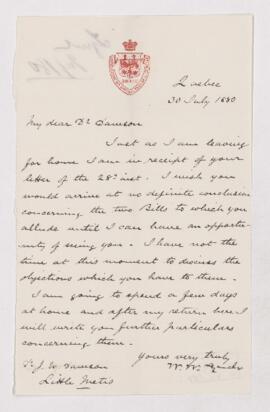 Quebec
30 July 1880
My dear Dr Dawson
Just as I am leaving
for home I am in receipt of your
letter of the 28th inst. I wish you
would arrive at no definite conclusion
concerning the two Bills to which you
allude until I can have an opportu-
nity of seeing you. I have not the
time at this moment to discuss the
objections which you have to them.
I am going to spend a few days
at home and after my return here I
will write you further particulars
concerning them.
Yours very truly
W. W. Lynch
Dr J. W. Dawson
Little Metis